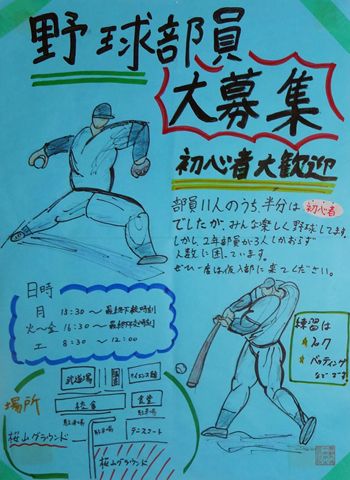 野球部員
大募集
初心者大歓迎
部員11人のうち、半分は初心者
でしたが、みんな楽しく野球してます。
しかし、2年部員が3人しかおらず
人数に困っています。
ぜひ一度は仮入部に来てください。
日時
月 15:30～最終下校時刻
火～金 16:30～最終下校時刻
土 8:30～12:00
練習は
ノック
バッティング
などです。
場所
武道場
校舎
食堂
駐車場
駐車場
テニスコート
桜山グラウンド
桜山グラウンド